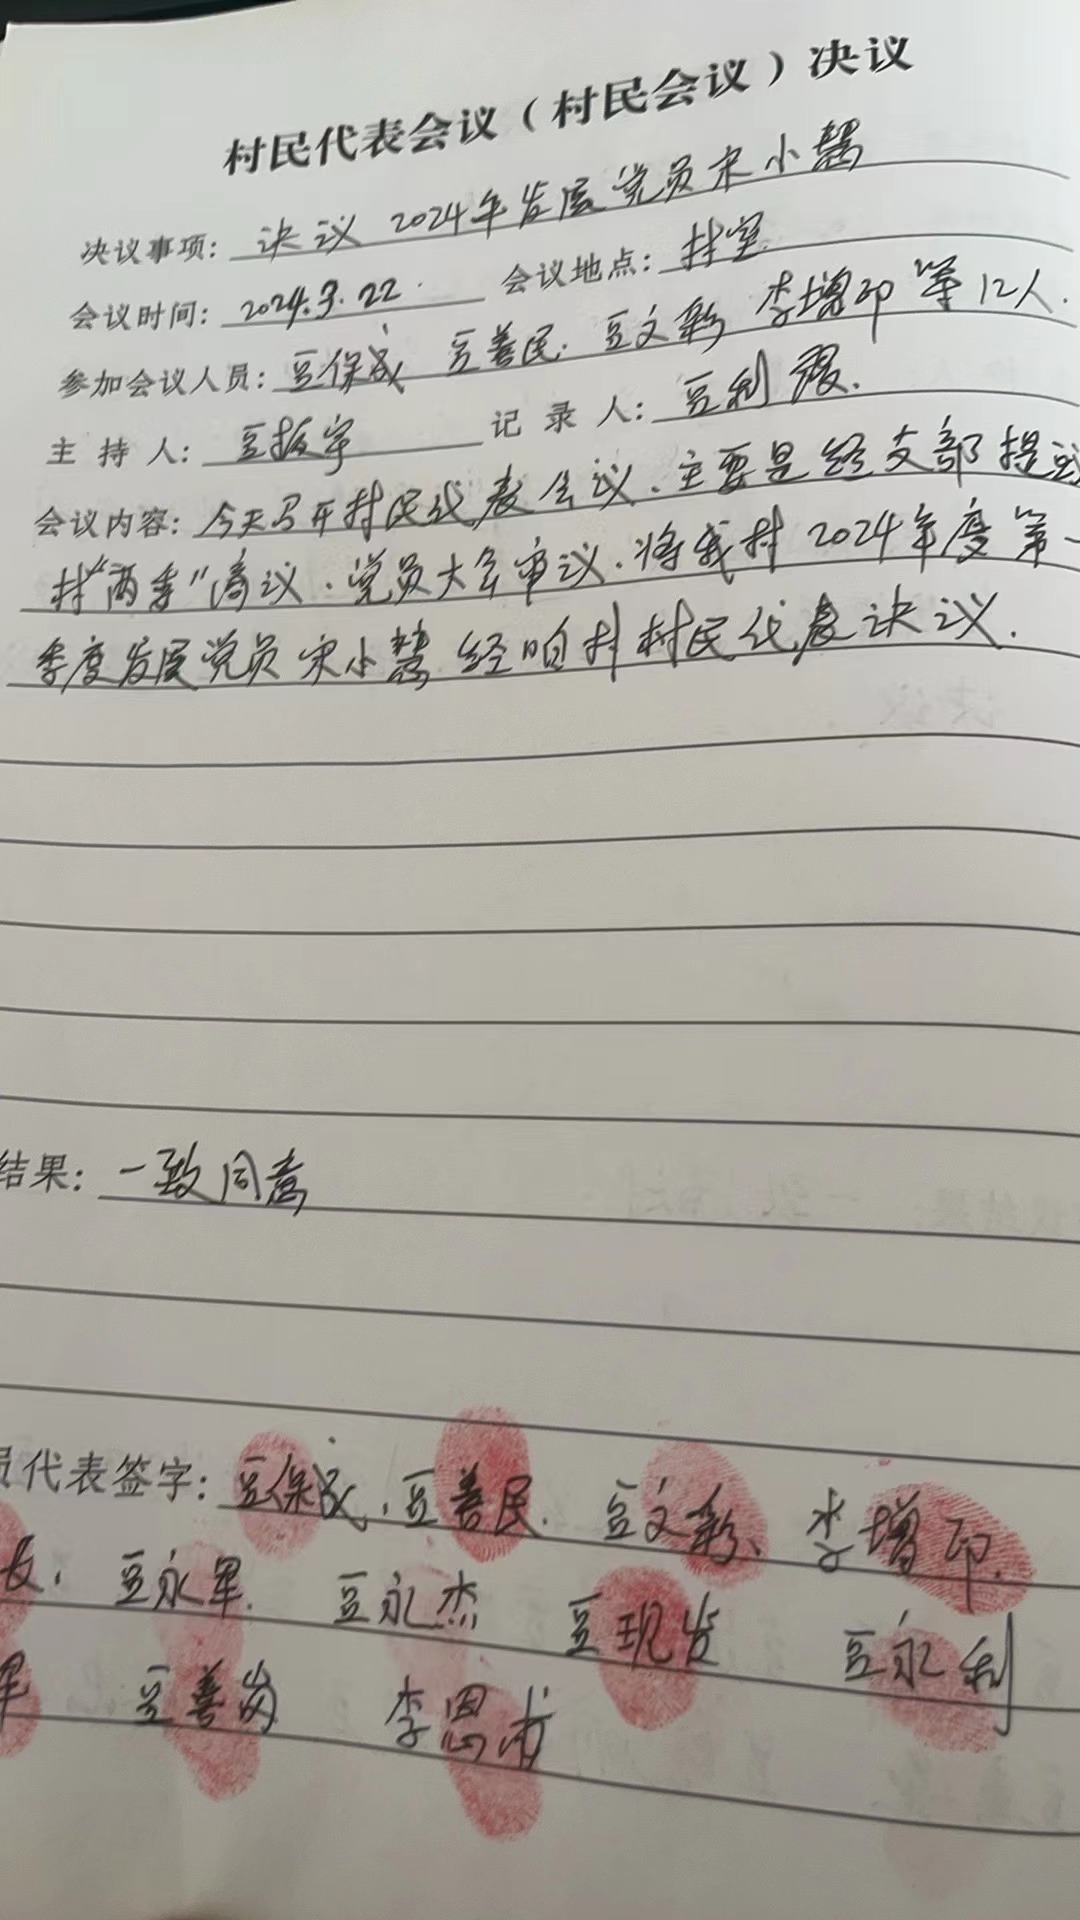 村民代表会议（村民会议）决议
决议事项：决议 2024年发展党员宋小慧
会议时间：2024.3.22. 会议地点：村室
参加会议人员：豆保成 豆善民. 豆文彩 李增印 等12人.
主 持 人：豆振宇 记 录 人：豆利霞.
会议内容：今天召开村民代表会议、主要是经支部提议
村“两委”商议、党员大会审议、将我村 2024年度第一
季度发展党员宋小慧 经咱村村民代表决议.
结果：一致同意
员代表签字：豆保成、豆善民. 豆文彩、李增印.
友. 豆永军. 豆永杰 豆现岁 豆永利
军 豆善岗 李恩